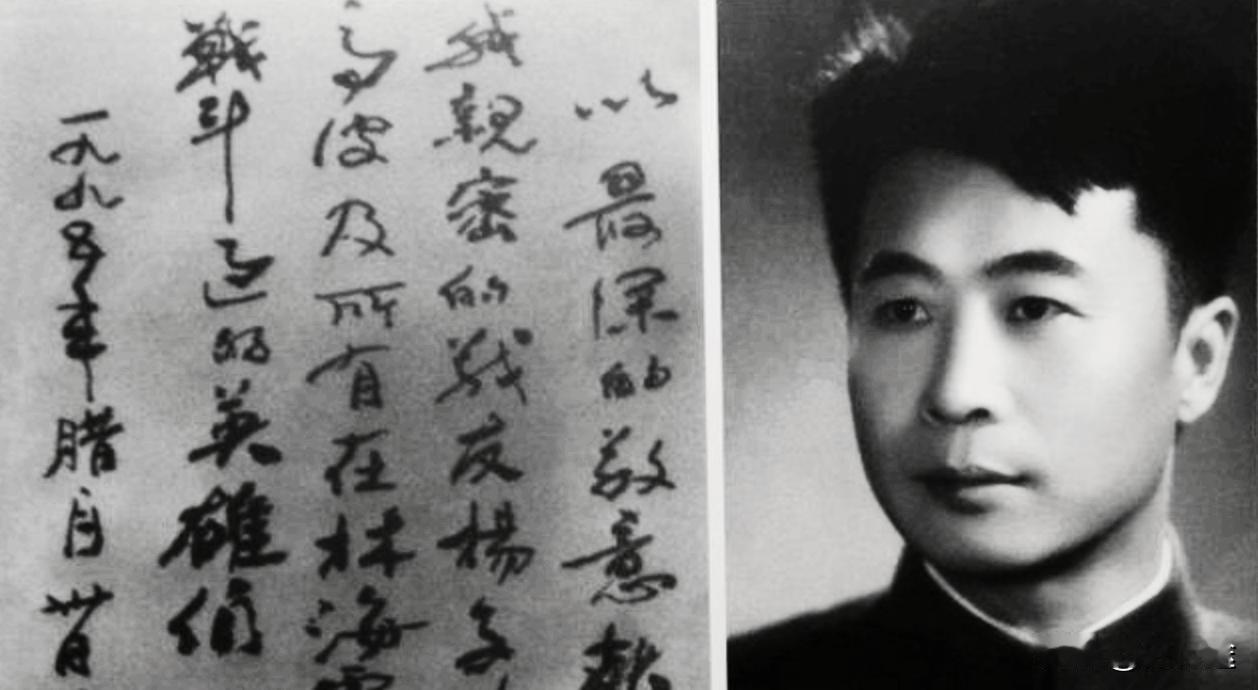 以最深的敬意献
我親密的战友楊子
高波及所有在林海雪
戰斗过的英雄们
一九九五年腊月卅日